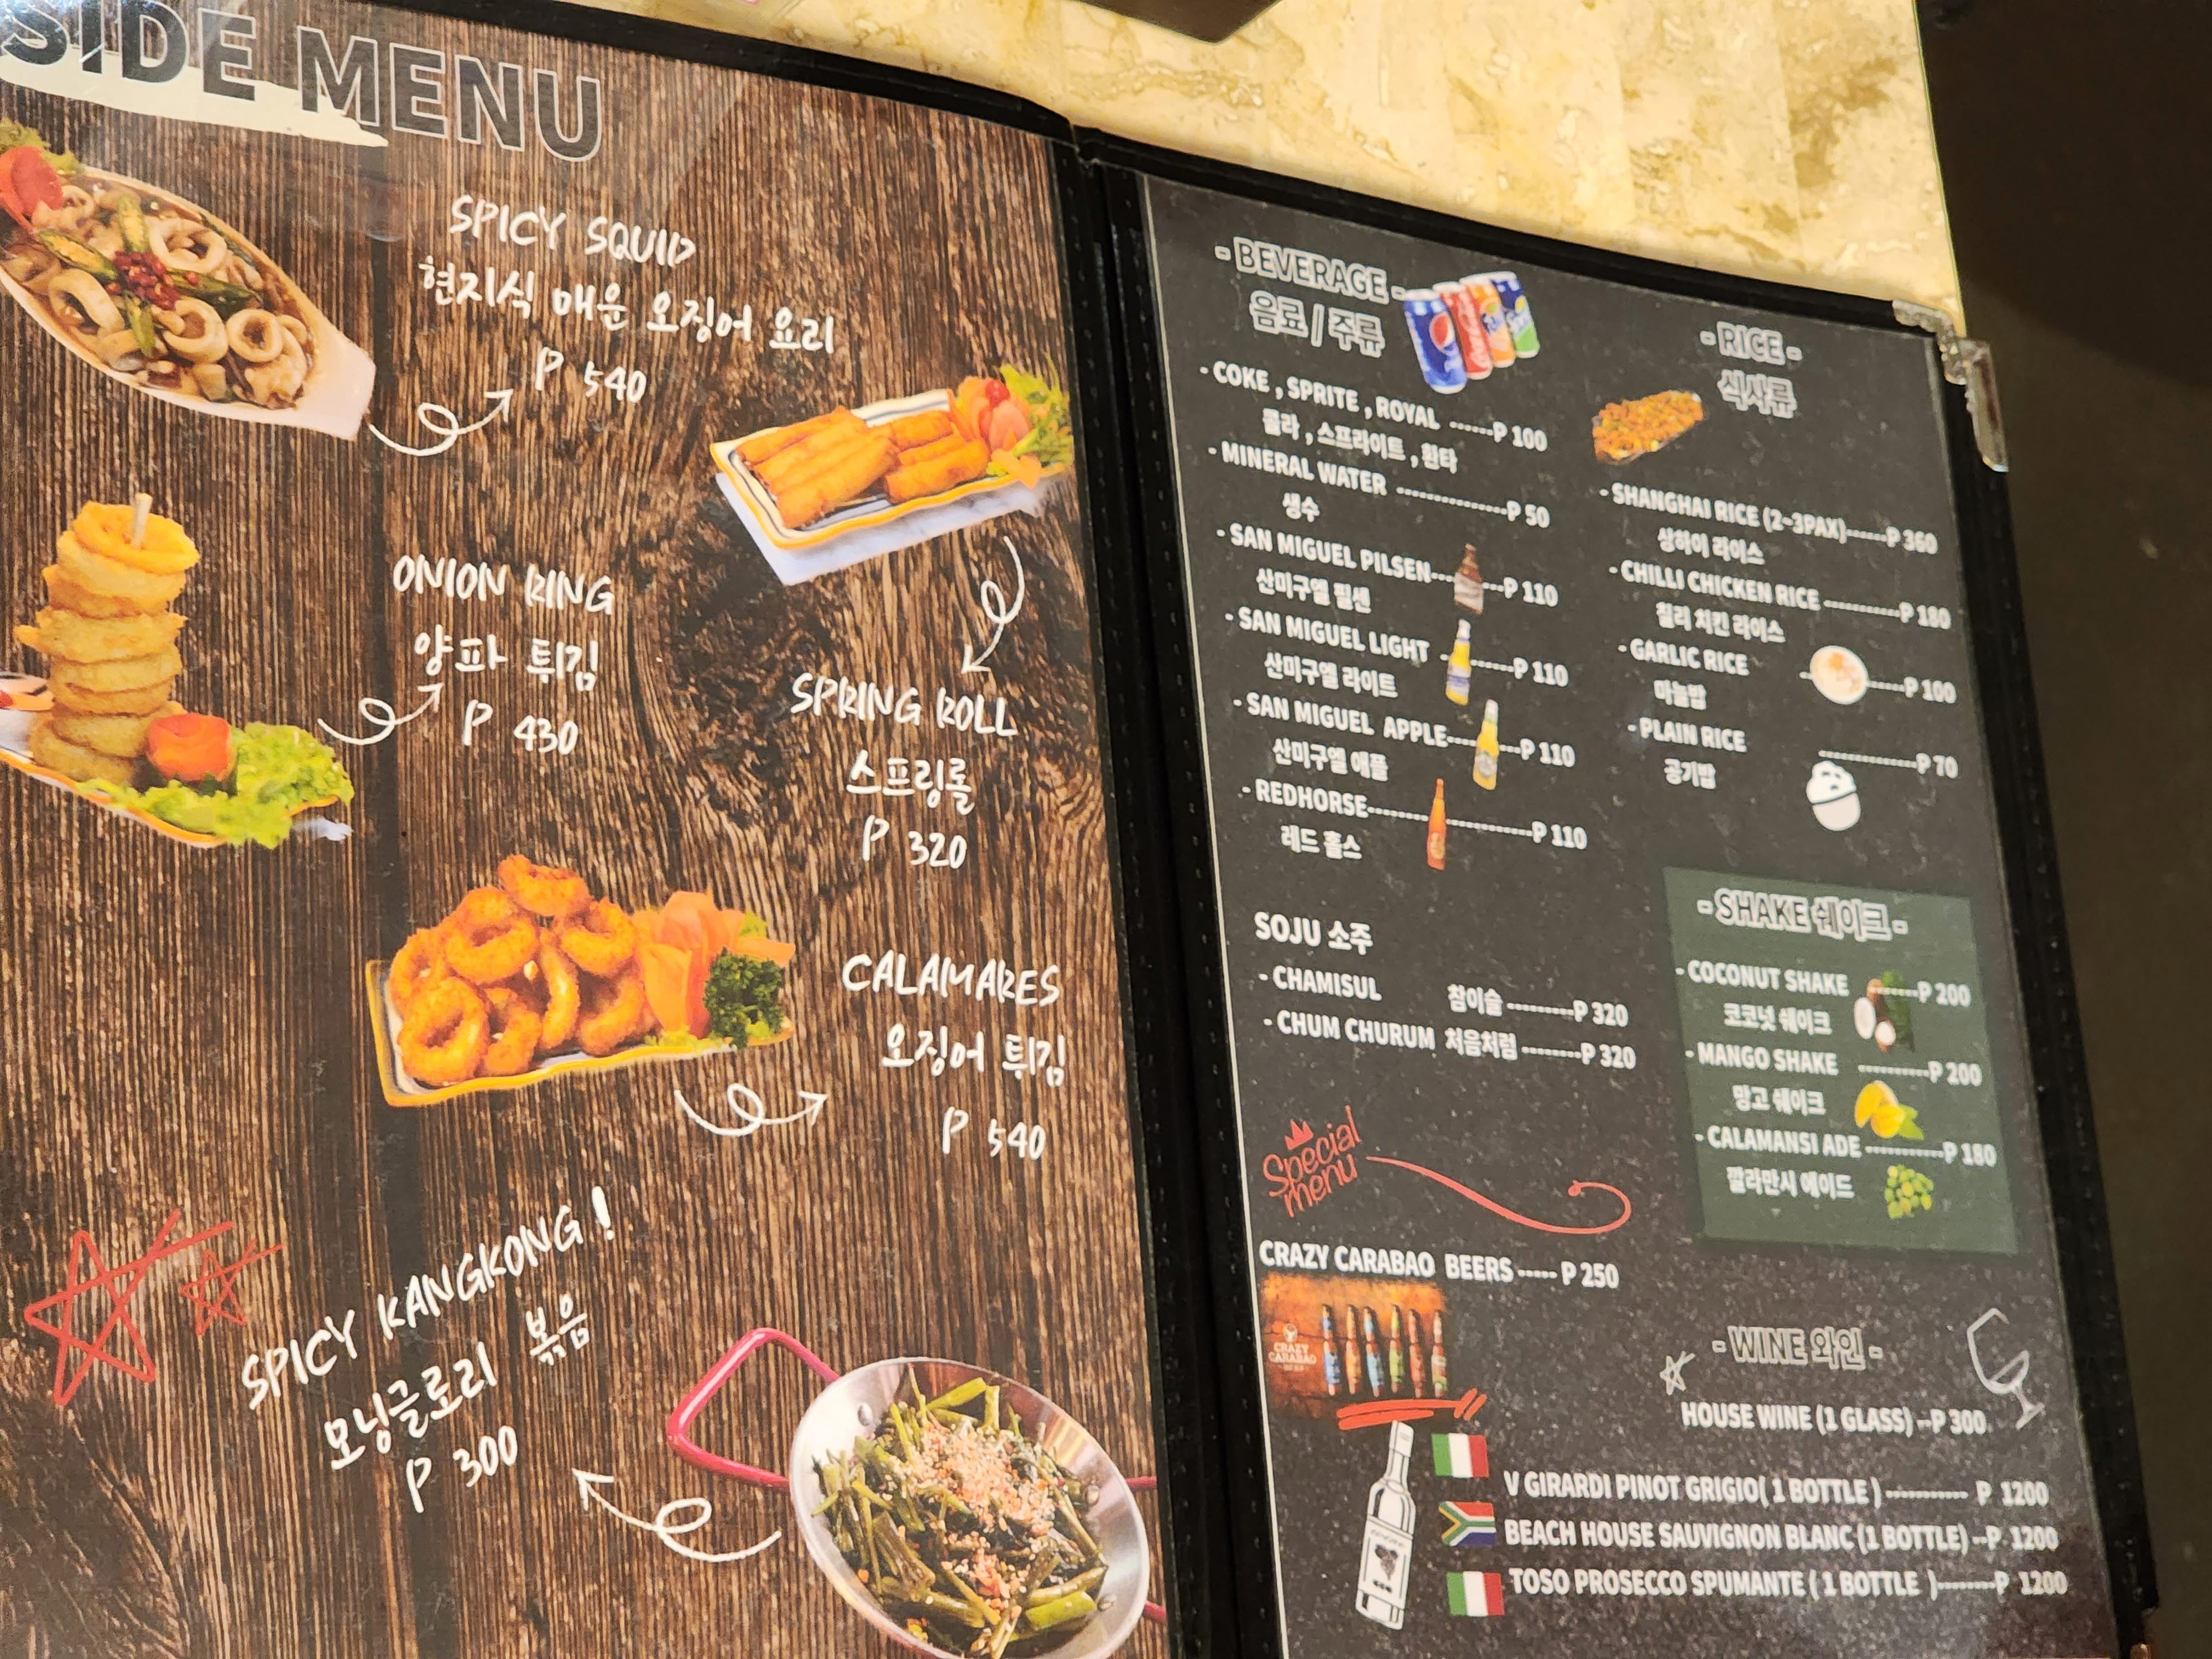 SIDE MENU
SPICY SQUID
현지식 매운 오징어 요리
P 540
ONION RING
양파 튀김
P 430
SPRING ROLL
스프링롤
P 320
CALAMARES
오징어 튀김
P 540
SPICY KANGKONG!
모닝글로리 볶음
P 300
- BEVERAGE -
음료 / 주류
- COKE , SPRITE , ROYAL ------P 100
콜라 , 스프라이트 , 환타
- MINERAL WATER ---------------P 50
생수
- SAN MIGUEL PILSEN--------P 110
산미구엘 필센
- SAN MIGUEL LIGHT --------P 110
산미구엘 라이트
- SAN MIGUEL APPLE--------P 110
산미구엘 애플
- REDHORSE--------------------P 110
레드 홀스
SOJU 소주
- CHAMISUL 참이슬 ---------P 320
- CHUM CHURUM 처음처럼 --------P 320
Special
menu
CRAZY CARABAO BEERS ----- P 250
CRAZY
CARABAO
- RICE -
식사류
- SHANGHAI RICE (2~3PAX)------P 360
상하이 라이스
- CHILLI CHICKEN RICE -----------P 180
칠리 치킨 라이스
- GARLIC RICE ------P 100
마늘밥
- PLAIN RICE --------------P 70
공기밥
- SHAKE 쉐이크 -
- COCONUT SHAKE -------P 200
코코넛 쉐이크
- MANGO SHAKE ----------P 200
망고 쉐이크
- CALAMANSI ADE -----------P 180
깔라만시 에이드
- WINE 와인 -
HOUSE WINE (1 GLASS) --P 300
V GIRARDI PINOT GRIGIO( 1 BOTTLE ) ----------- P 1200
BEACH HOUSE SAUVIGNON BLANC (1 BOTTLE) --P 1200
TOSO PROSECCO SPUMANTE ( 1 BOTTLE )--------P 1200